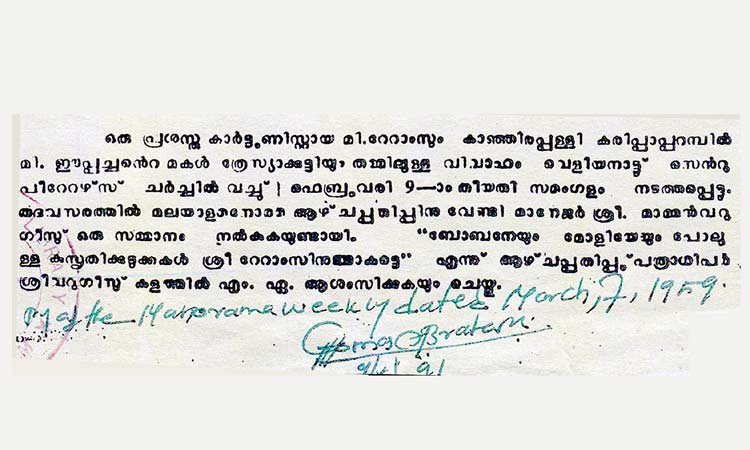 ഒരു പ്രശസ്ത കാർട്ടൂണിസ്റ്റായ മി.റോംസും കാഞ്ഞിരപ്പള്ളി കരിപ്പാപ്പറമ്പിൽ
മി. ഈപ്പച്ചൻെറ മകൾ ത്രേസ്യാക്കുട്ടിയും തമ്മിലുള്ള വിവാഹം വെളിയനാട്ട് സെൻറു
പീറേറഴ്സ് ചർച്ചിൽ വച്ചു് ഫെബ്രുവരി 9—ാം തീയതി സമംഗളം നടത്തപ്പെട്ടു.
തദവസരത്തിൽ മലയാളമനോരമ ആഴ്ചപ്പതിപ്പിനു വേണ്ടി മാനേജർ ശ്രീ. മാമ്മൻവറു
ഗീസ് ഒരു സമ്മാനം നൽകുകയുണ്ടായി. “ബോബനേയും മോളിയേയും പോലു
ള്ള കുസൃതിക്കുടുക്കകൾ ശ്രീ റോംസിനുണ്ടാകട്ടെ” എന്നു് ആഴ്ചപ്പതിപ്പു് പത്രാധിപർ
ശ്രീവറുഗീസ് കളത്തിൽ എം. ഏ. ആശംസിക്കുകയും ചെയ്തു.
of the Manorama weekly dated March, 7, 1959.